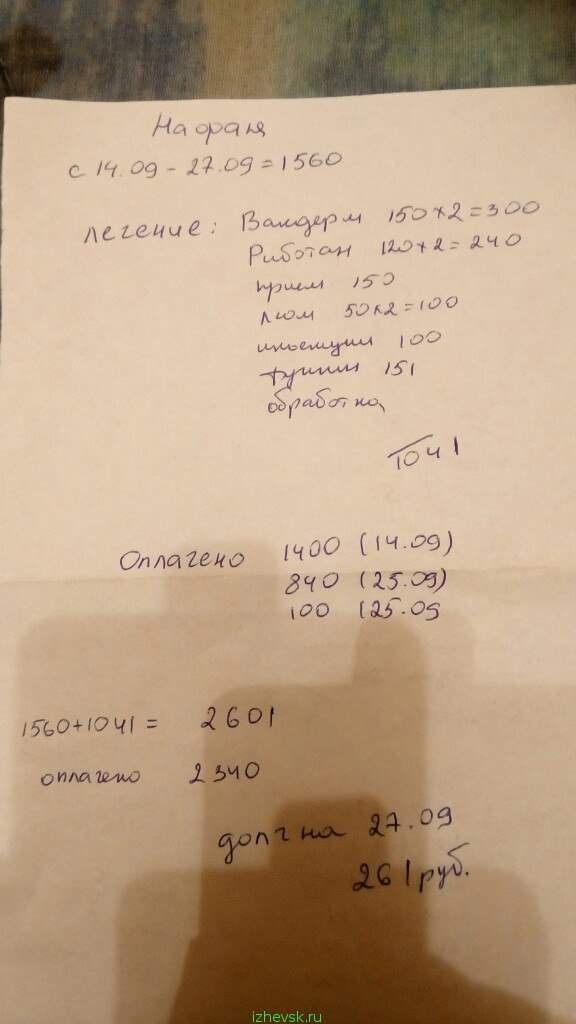 с 14.09 - 27.09 = 1560
лечение: Вакдерм 150×2=300
Риботан 120×2=240
прием 150
люм 50×2=100
иньекции 100
151
обработка
1041
Оплачено 1400 (14.09)
840 (25.09)
100 (25.09
1560+1041 = 2601
оплачено 2340
долг на 27.09
261 руб.
izhevsk.ru